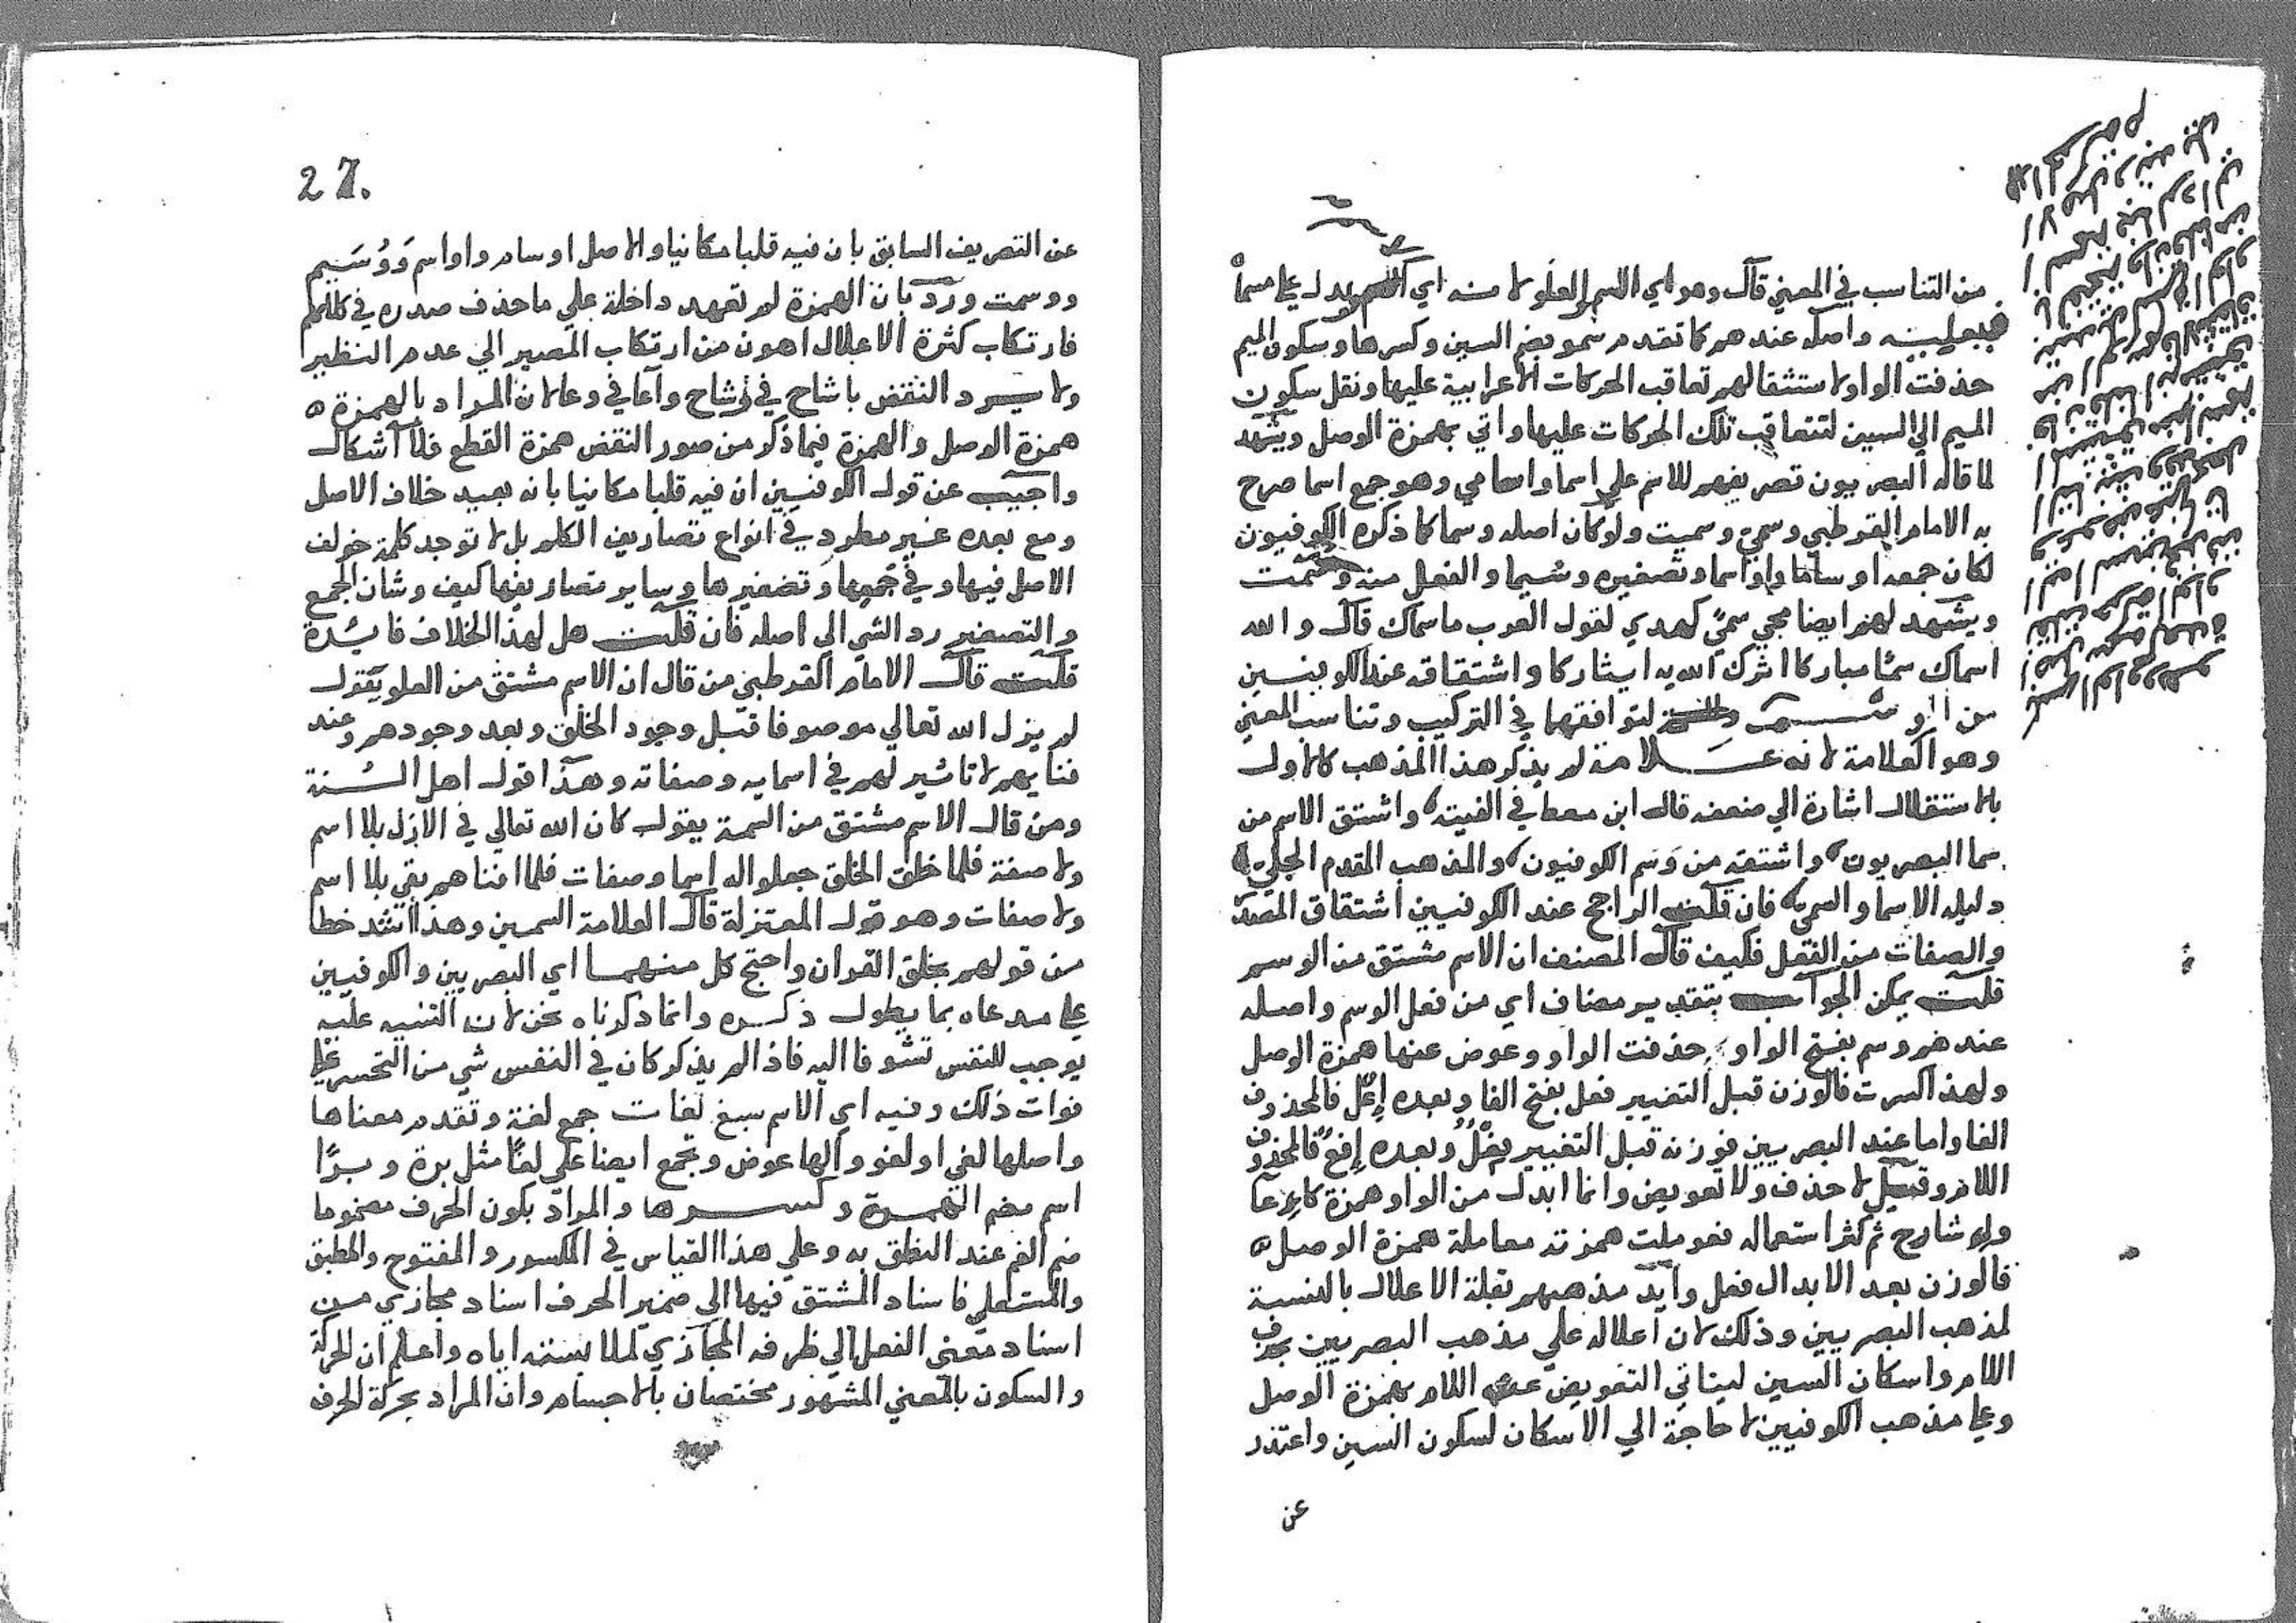 من التناسب في المعني قال وهو اي الاسم العلو لانه اي يدل علي مسماه
فيعليه واصله عندهم كما تقدم سمو بضم السين وكسرها وسكون الميم
حذفت الواو لاستثقالهم تعاقب الحركات الاعرابية عليها ونقل سكون
الميم الي السين لتتعاقب تلك الحركات عليها واتي بهمزة الوصل ويشهد
لما قاله البصريون تصريفهم للاسم علي اسما واسامي وهو جمع اسما صرح
به الامام القرطبي وسمي وسميت ولو كان اصله وسما كما ذكره الكوفيون
لكان جمعه اوساما واواسما وتصغيره وسيما والفعل منه وسمت
ويشهد لهم ايضا مجي سمي كهدي لقول العرب ماسماك قال والله
اسماك سما مباركا اثرك الله به ايثاركا واشتقاقه عند الكوفيين
من الوسم لتوافقهما في التركيب وتناسب المعني
وهو العلامة لانه علامة لم يذكر هذا المذهب كالاول
بالاستقلال اشارة الي ضعفه قال ابن معط في الفيته واشتق الاسم من
سما البصريون واشتقه من وسم الكوفيون والمذهب المقدم الجلي
دليله الاسما والسمي فان قلت الراجح عند الكوفيين اشتقاق المصدر
والصفات من الفعل فكيف قال المصنف ان الاسم مشتق من الوسم
قلت يمكن الجواب بتقدير مضاف اي من فعل الوسم واصله
عندهم وسم بفتح الواو حذفت الواو وعوض عنها همزة الوصل
ولهذا كسرت فالوزن قبل التغيير فعل بفتح الفا وبعده إعل فالمحذوف
الفا واما عند البصريين فوزنه قبل التغيير فعل وبعده إفع فالمحذوف
اللام وقيل لا حذف ولا تعويض وانما ابدل من الواو همزة كاعا
شارح ثم كثر استعماله فعوملت همزته معاملة همزة الوصل
فالوزن بعد الابدال فعل وايد مذهبهم بقلة الاعلال بالنسبة
لمذهب البصريين وذلك لان اعلاله علي مذهب البصريين بحذف
اللام واسكان السين ليتاتي التعويض عن اللام بهمزة الوصل
وعلي مذهب الكوفيين لا حاجة الي الاسكان لسكون السين واعتذر
عن
27.
عن التصريف السابق بان فيه قلبا مكانيا والاصل اوسام واواسم ووسيم
ووسمت ورد بان الهمزة لم تعهد داخلة علي ما حذف صدره في كلامهم
فارتكاب كثرة الاعلال اهون من ارتكاب المصير الي عدم النظير
ولا يرد النقض باشاح في وشاح واعا في وعا لان المراد بالهمزة
همزة الوصل والهمزة فيما ذكر من صور النقض همزة القطع فلا اشكال
واجيب عن قول الكوفيين ان فيه قلبا مكانيا بانه بعيد خلاف الاصل
ومع بعده غير مطرد في انواع تصاريف الكلم بل لا توجد كلمة خولف
الاصل فيها وفي جمعها وتصغيرها وساير تصاريفها كيف وشان الجمع
والتصغير رد الشي الي اصله فان قلت هل لهذا الخلاف فائدة
قلت قال الامام القرطبي من قال ان الاسم مشتق من العلو يقول
لم يزل الله تعالي موصوفا قبل وجود الخلق وبعد وجودهم وعند
فنايهم لا تاثير لهم في اسمايه وصفاته وهذا قول اهل السنة
ومن قال الاسم مشتق من السمة يقول كان الله تعالي في الازل بلا اسم
ولا صفة فلما خلق الخلق جعلوا له اسما وصفات فلما افناهم بقي بلا اسم
ولا صفات وهو قول المعتزلة قال العلامة السمين وهذا اشد خطا
من قولهم بخلق القران واحتج كل منهما اي البصريين والكوفيين
علي مدعاه بما يطول ذكره وانما ذكرناه نحن لان التنبيه عليه
يوجب للنفس تشوفا اليه فاذا لم يذكر كان في النفس شي من التحسر علي
فوات ذلك وفيه اي الاسم سبع لغات جمع لغة وتقدم معناها
واصلها لغي او لغو والها عوض وتجمع ايضا علي لغا مثل برة وبرا
اسم بضم الهمزة وكسرها والمراد بكون الحرف مضموما
ضم الفم عند النطق به وعلي هذا القياس في المكسور والمفتوح والمطبق
والمستعلي فاسناد المشتق فيها الي ضمير الحرف اسناد مجازي من
اسناد معني الفعل الي ظرفه المجازي لملابسته اياه واعلم ان الحركة
والسكون بالمعني المشهور مختصان بالاجسام وان المراد بحركة الحرف